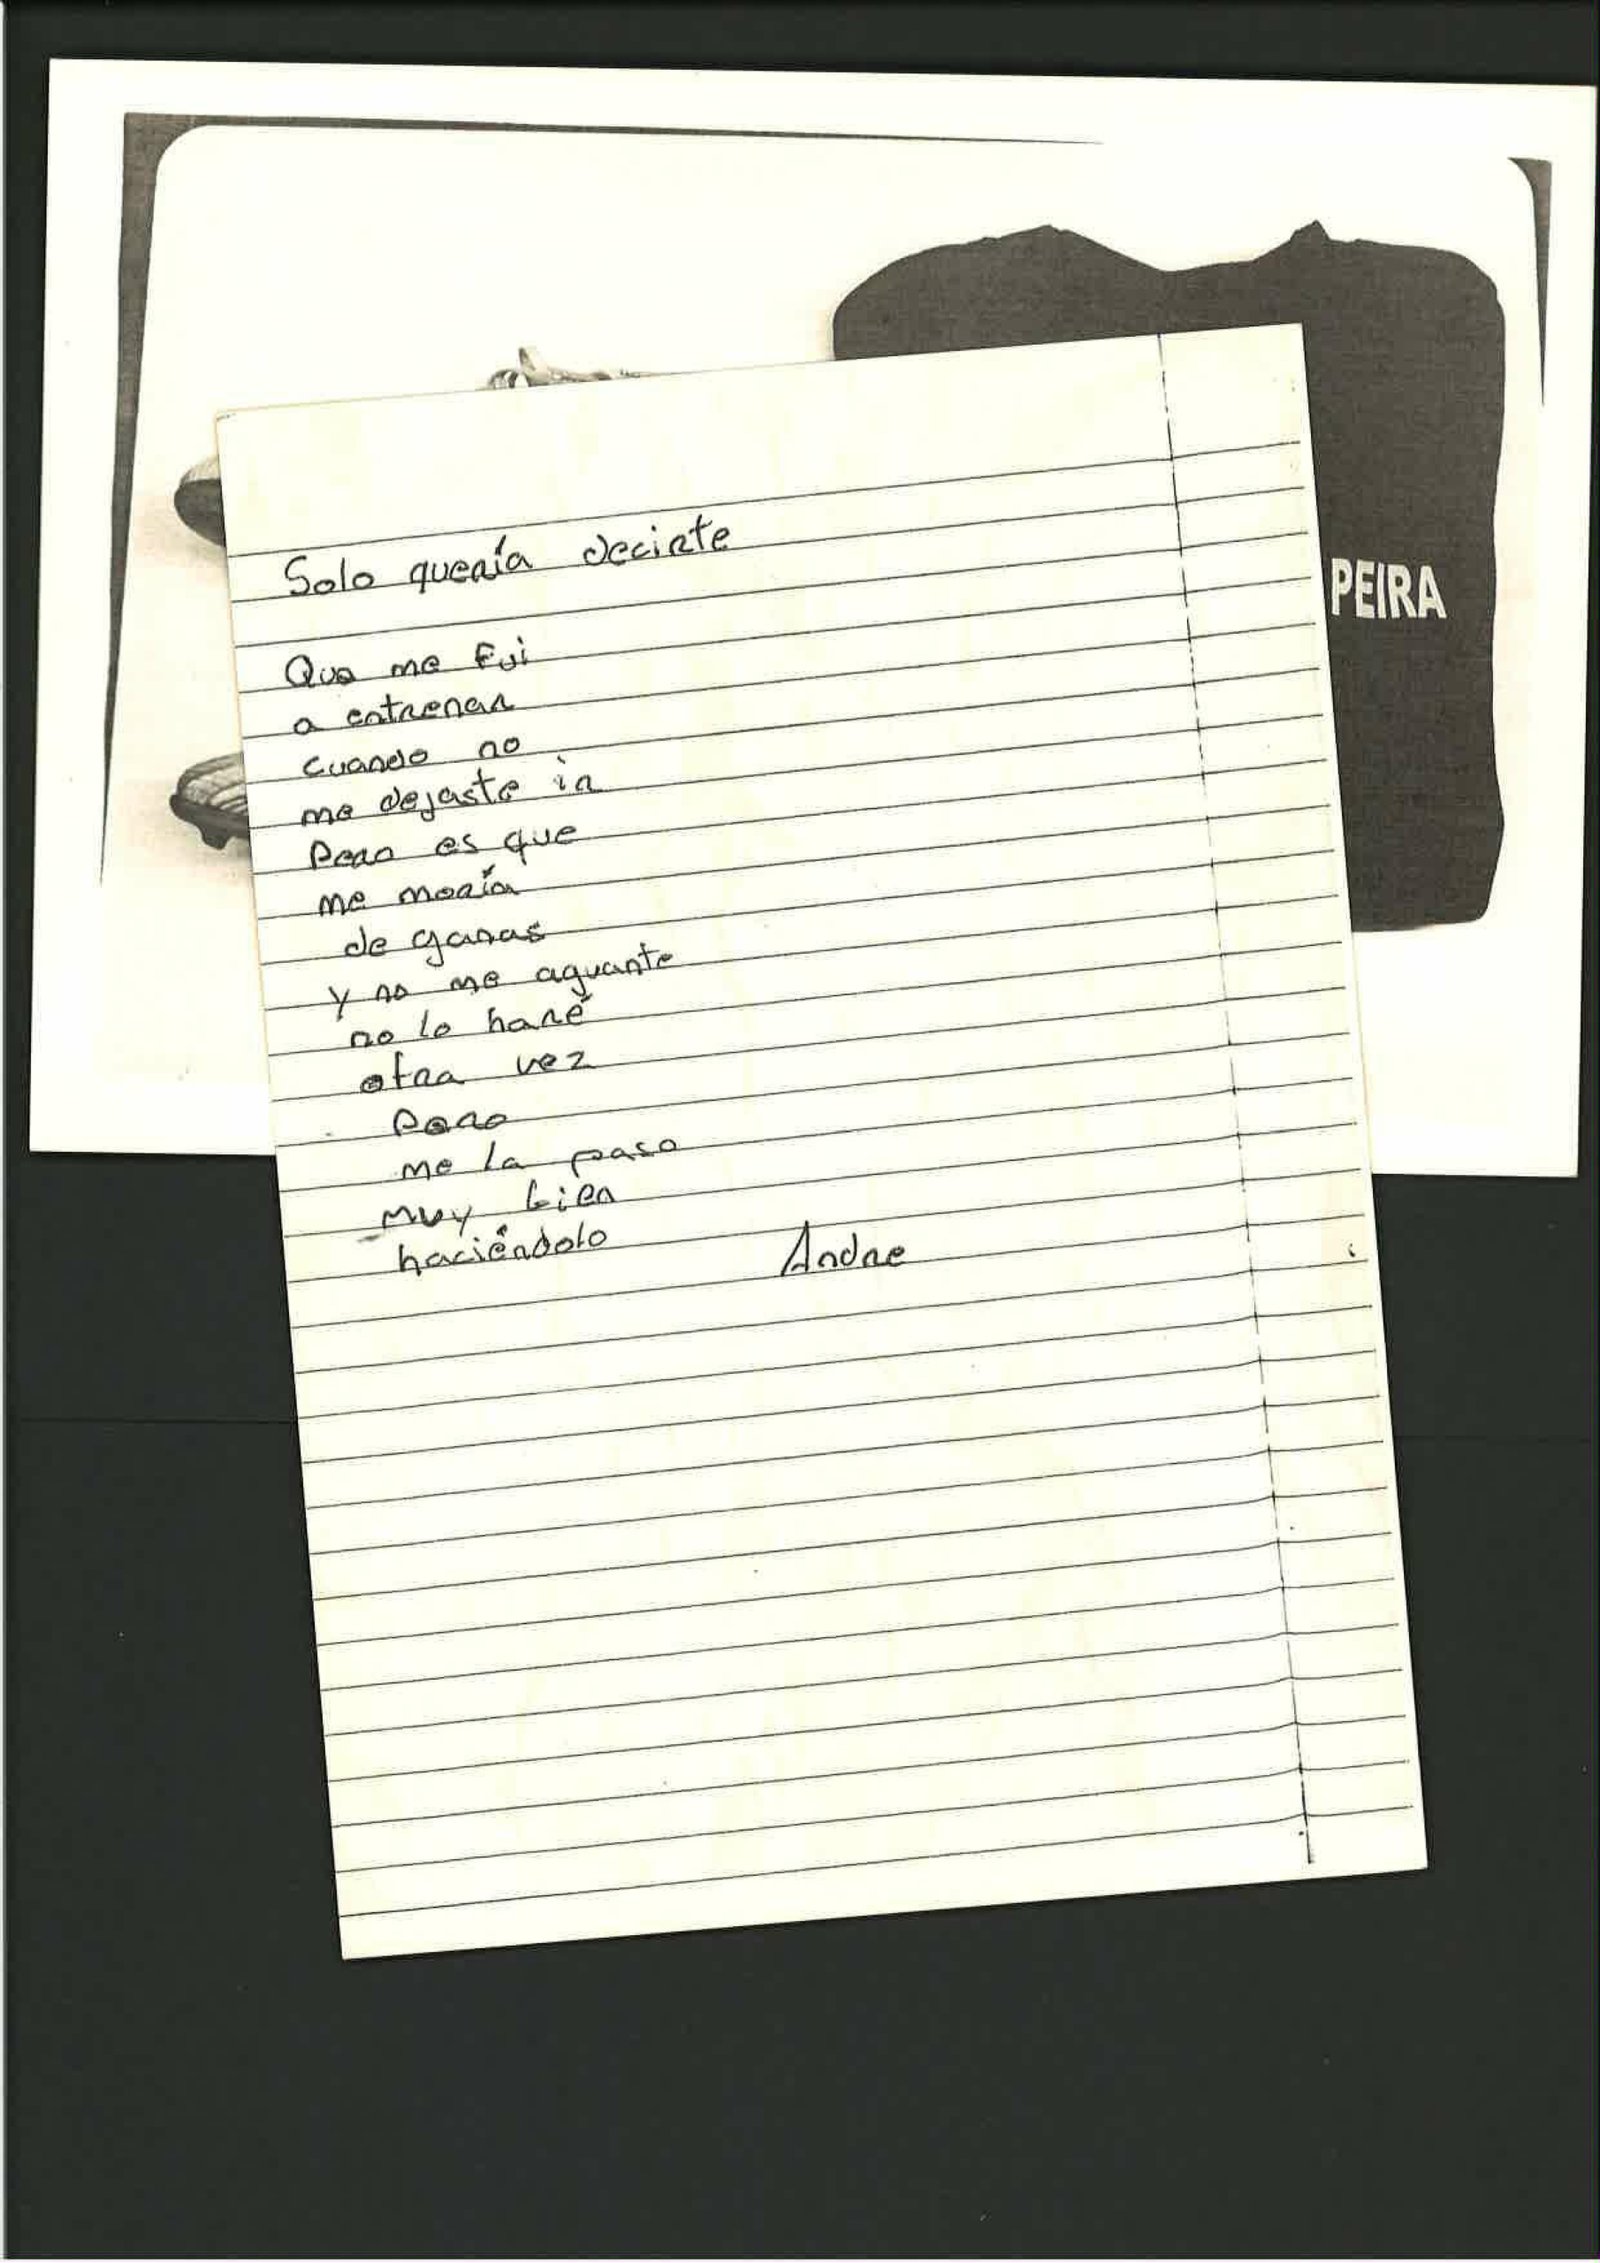 Solo quería decirte
Que me fui
a entrenar
cuando no
me dejaste ir
Pero es que
me moría
de ganas
y no me aguante
no lo haré
otra vez
Pero
me la paso
muy bien
haciéndolo
Andre
PEIRA